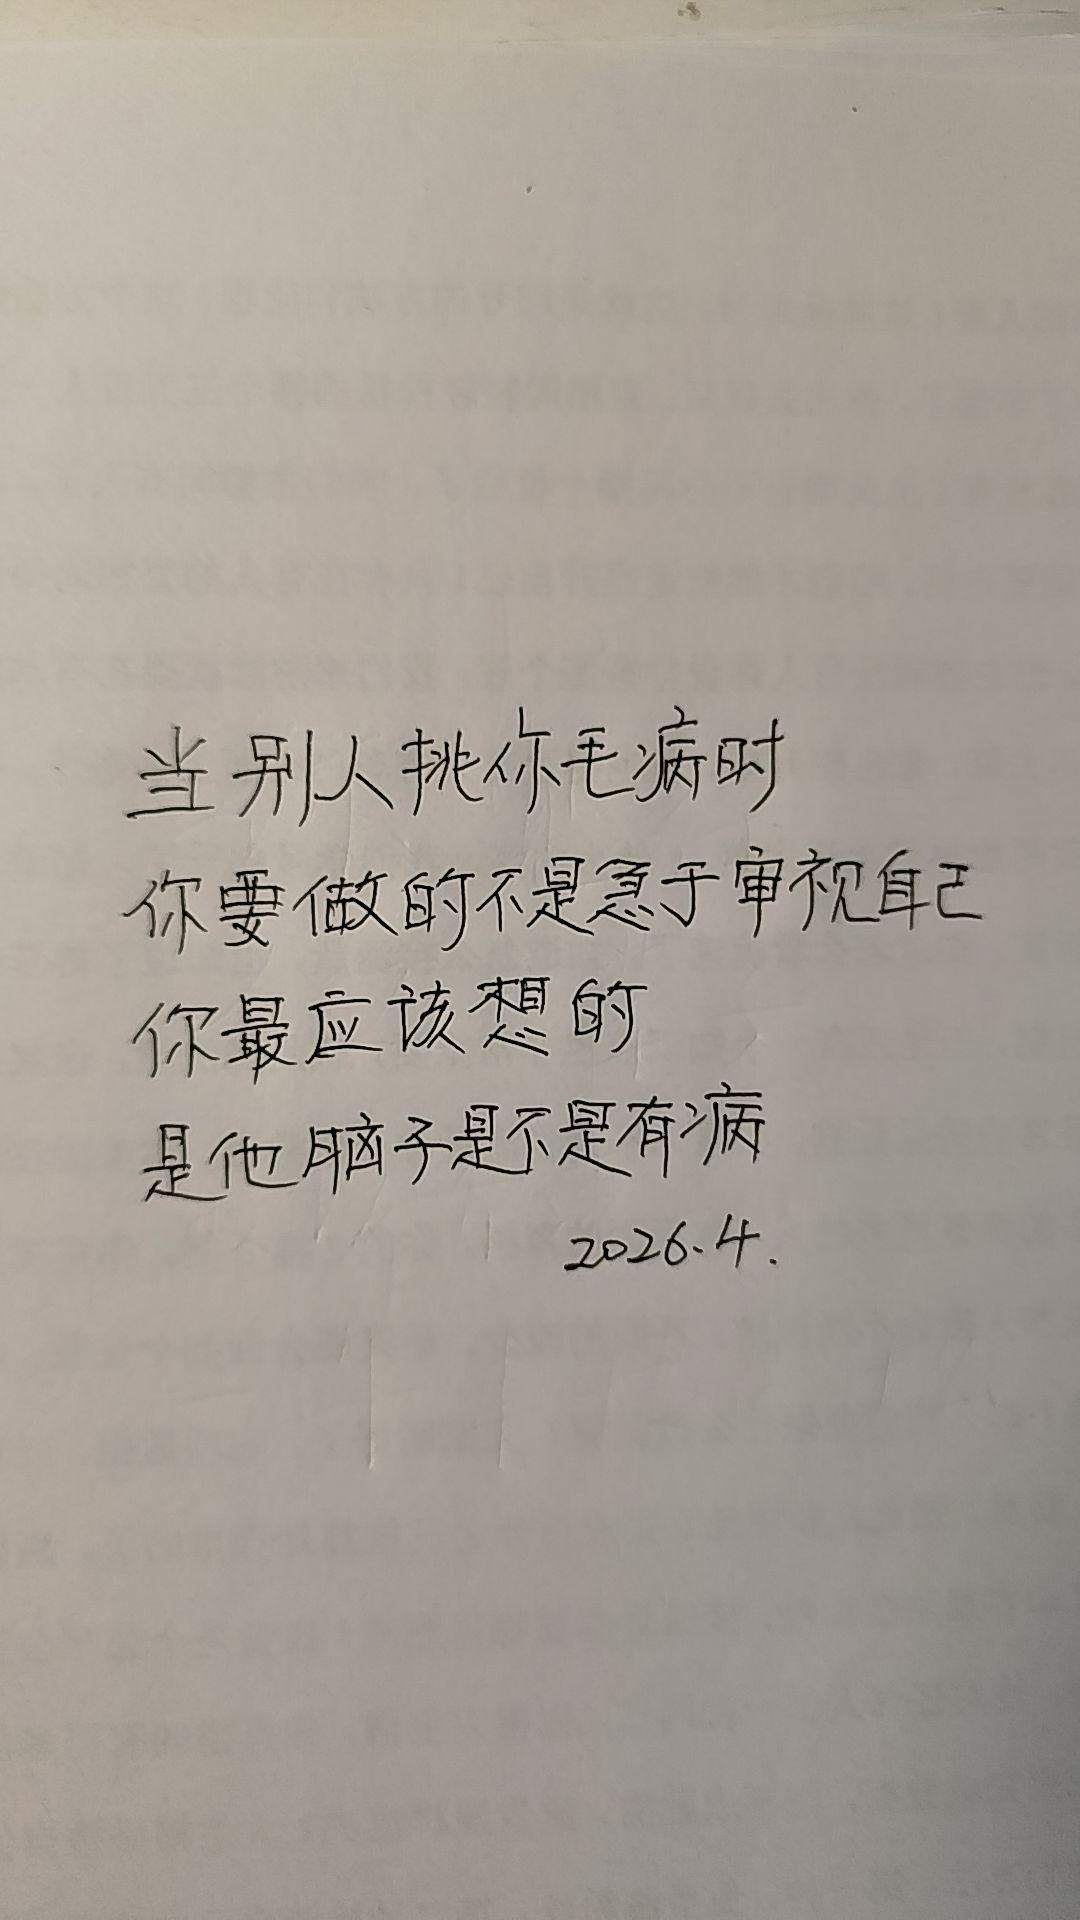 当别人挑你毛病时
你要做的不是急于审视自己
你最应该想的
是他脑子是不是有病
2026.4.